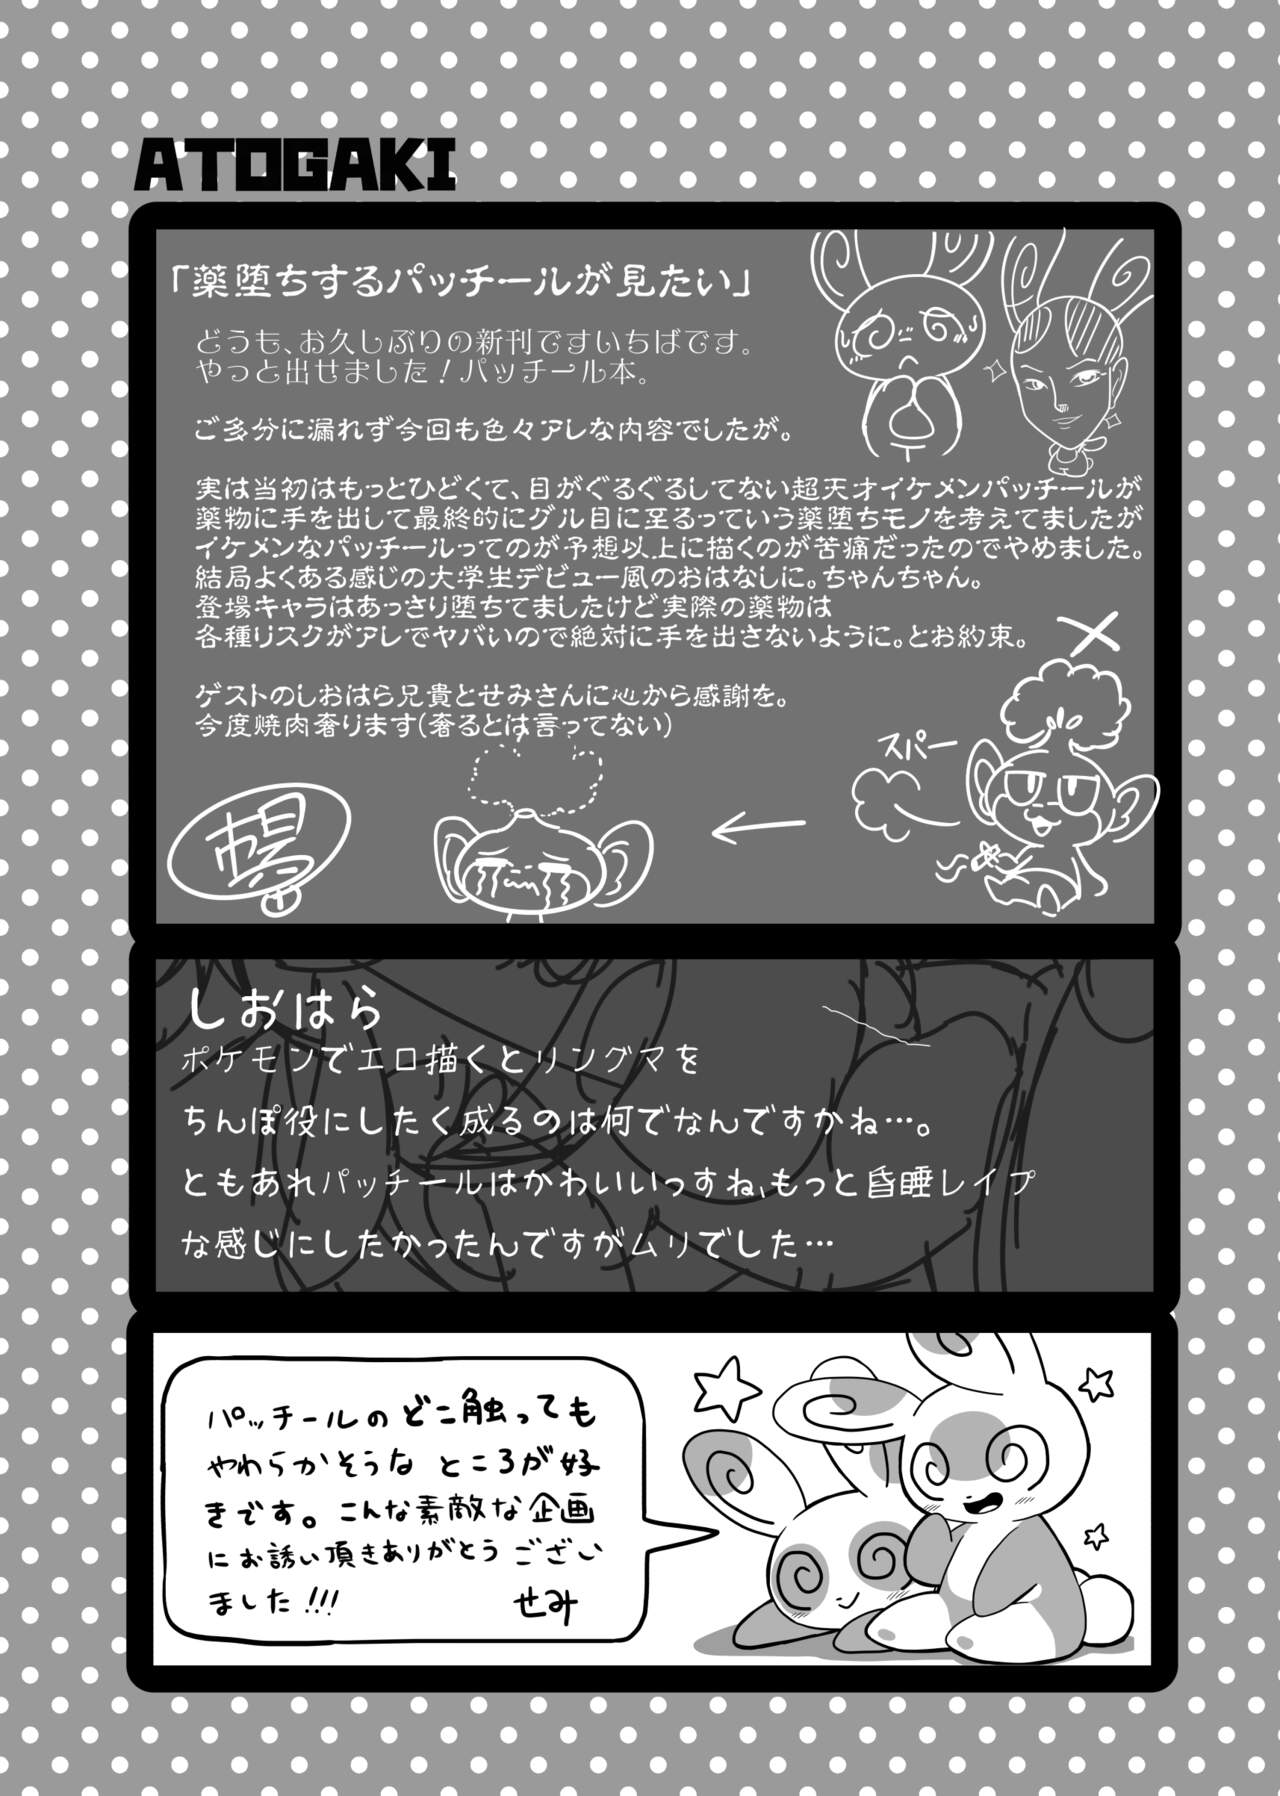 ATOGAKI
「薬堕ちするパッチールが見たい」
どうも、お久しぶりの新刊ですいちばです。
やっと出せました！パッチール本。
ご多分に漏れず今回も色々アレな内容でしたが。
実は当初はもっとひどくて、目がぐるぐるしてない超天才イケメンパッチールが
薬物に手を出して最終的にグル目に至るっていう薬堕ちモノを考えてましたが
イケメンなパッチールってのが予想以上に描くのが苦痛だったのでやめました。
結局よくある感じの大学生デビュー風のおはなしに。ちゃんちゃん。
登場キャラはあっさり堕ちてましたけど実際の薬物は
各種リスクがアレでヤバいので絶対に手を出さないように。とお約束。
ゲストのしおはら兄貴とせみさんに心から感謝を。
今度焼肉奢ります(奢るとは言ってない)
スパー
しおはら
ポケモンでエロ描くとリングマを
ちんぽ役にしたく成るのは何でなんですかね…。
ともあれパッチールはかわいいっすね、もっと昏睡レイプ
な感じにしたかったんですがムリでした…
パッチールのどこ触っても
やわらかそうなところが好
きです。こんな素敵な企画
にお誘い頂きありがとうござい
ました!!!
せみ